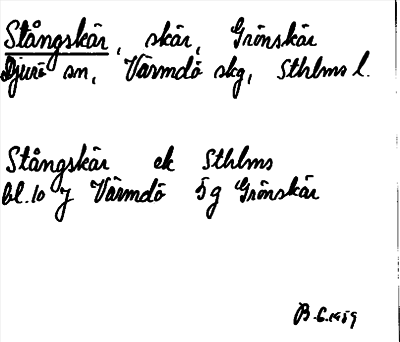 Stångskär, skär, Grönskär
Djurö sn, Värmdö skg, Sthlms l.
Stångskär ek Sthlms
bl. 10 7 Värmdö 5g Grönskär
B.G. 1959